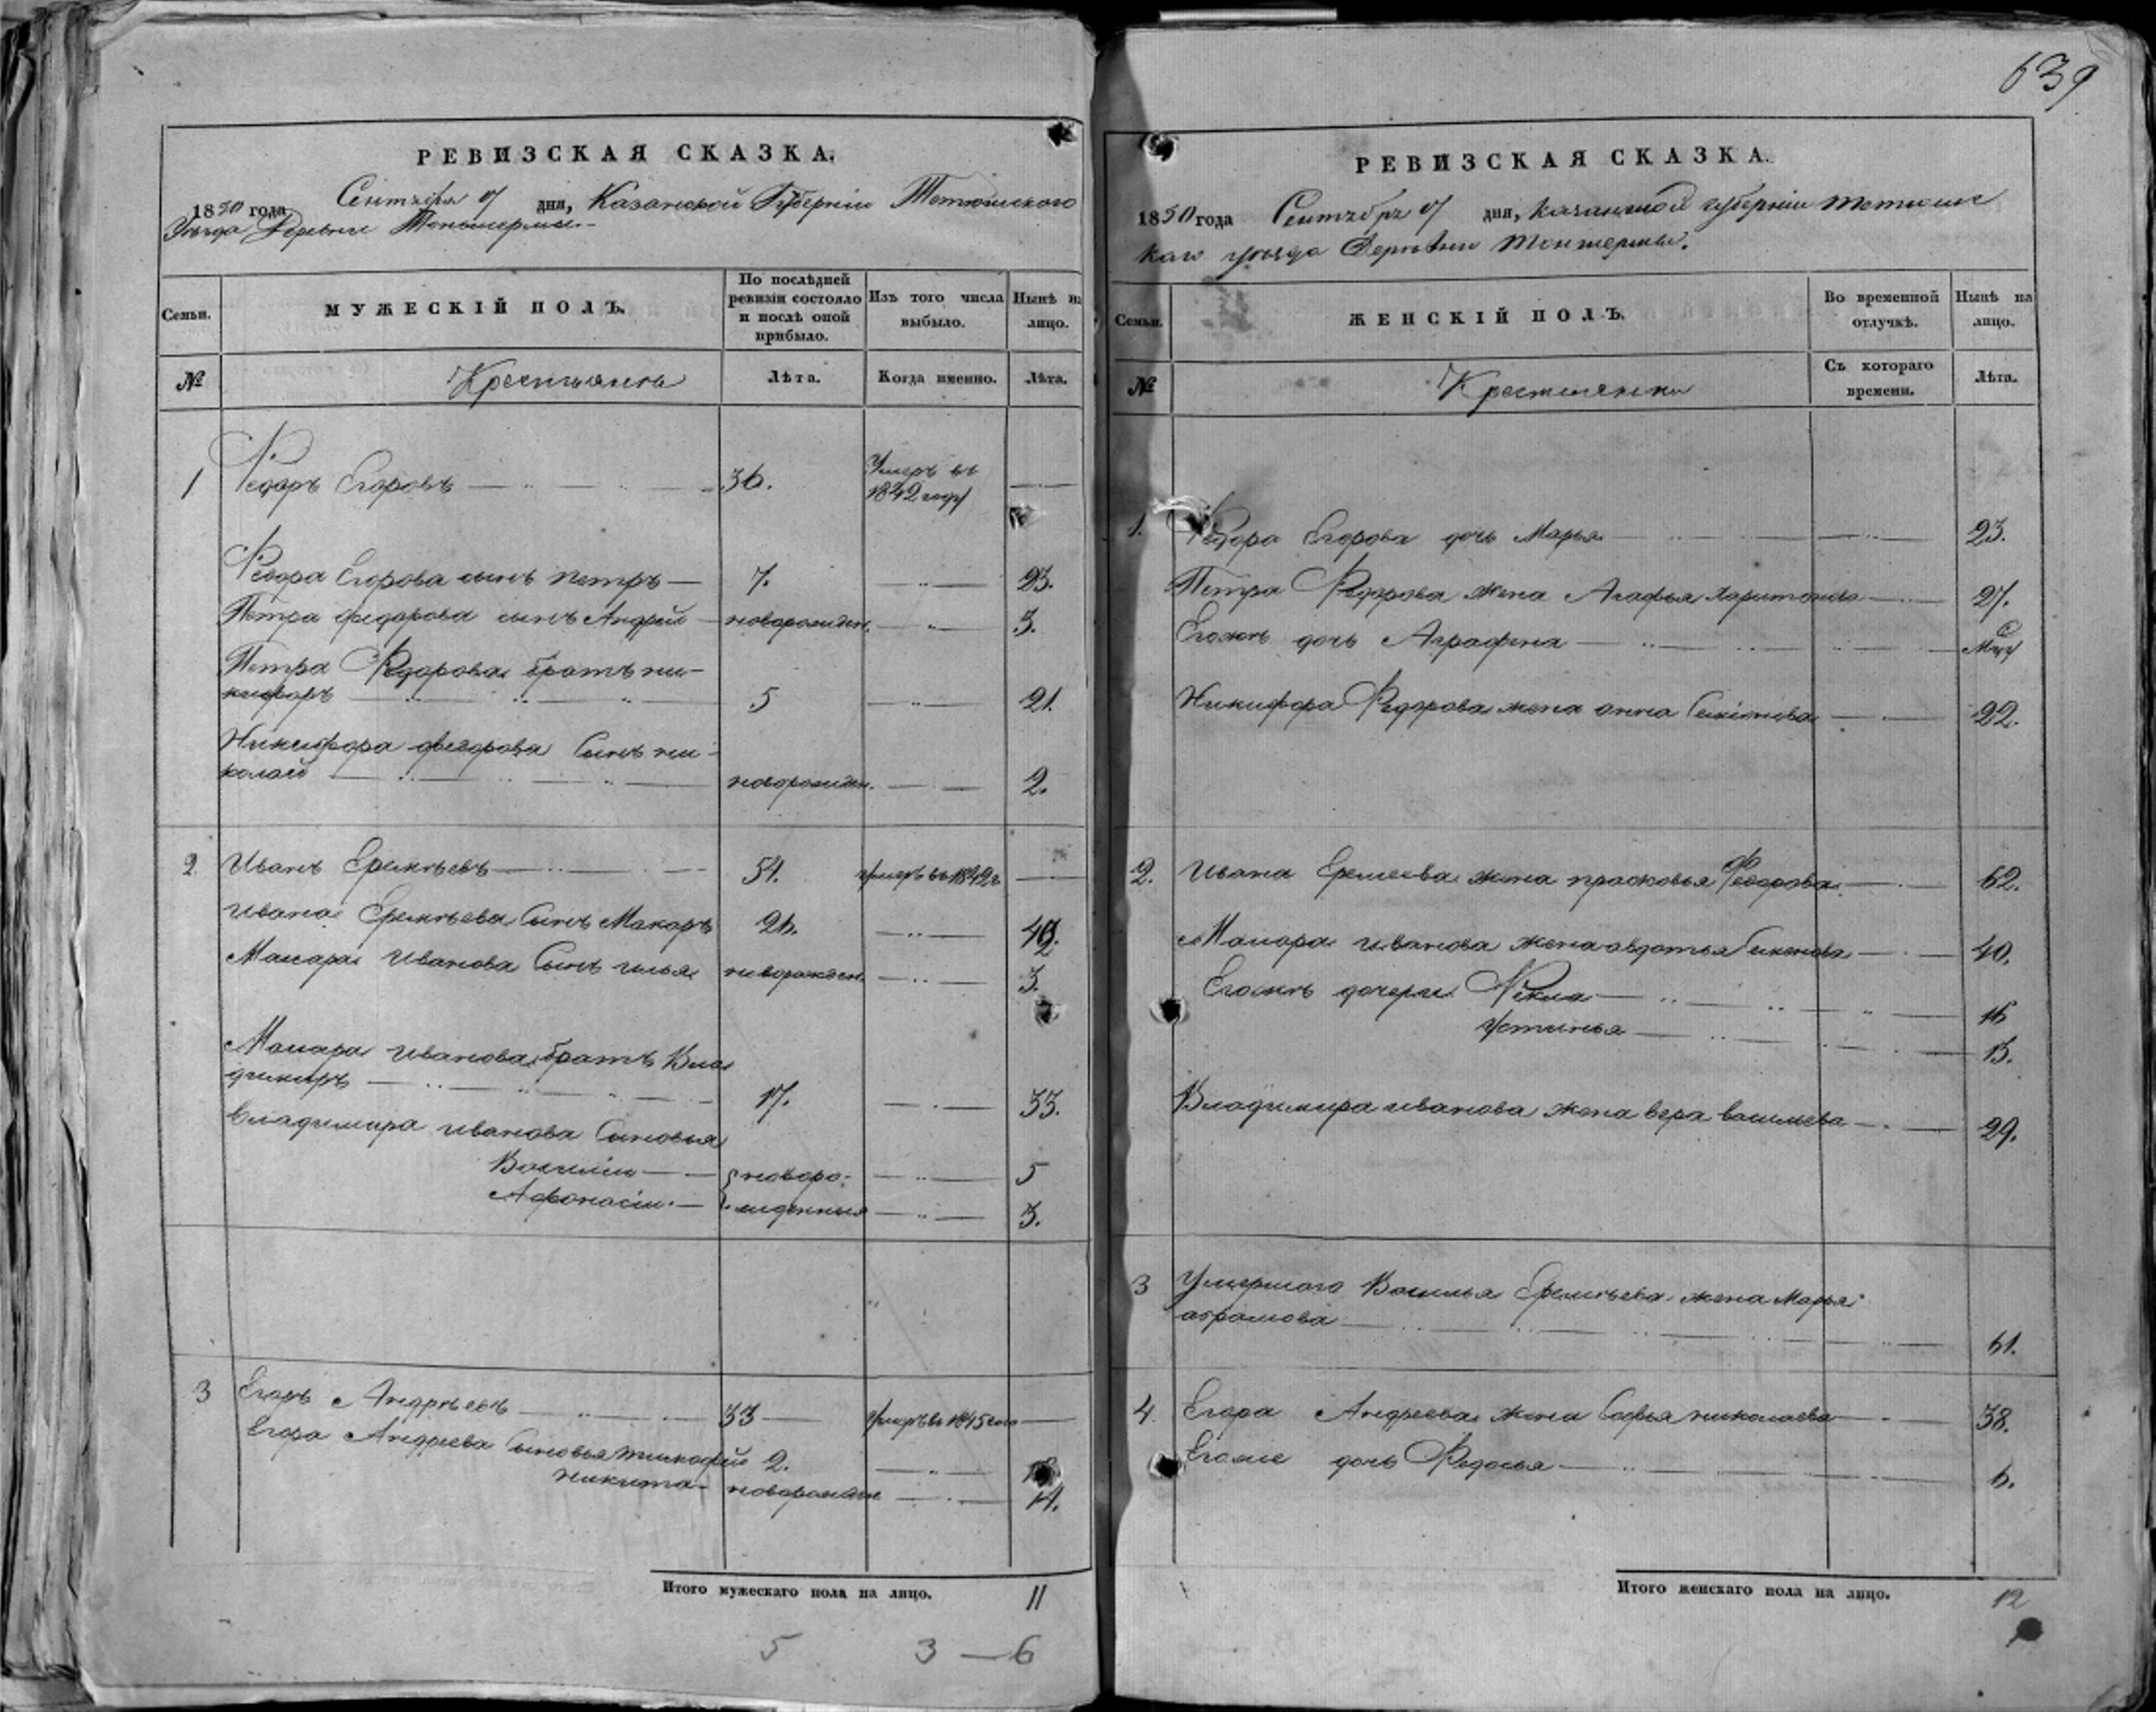 639
РЕВИЗСКАЯ СКАЗКА.
1850 года Сентября 17 дня, Казанской Губерніи Тетюшскаго
Уѣзда Деревни
Семьи.
МУЖЕСКІЙ ПОЛЪ.
По послѣдней ревизіи состояло и послѣ оной прибыло.
Изъ того числа выбыло.
Нынѣ на лицо.
№
Крестьянъ
Лѣта.
Когда именно.
Лѣта.
1 Ѳедоръ Егоровъ 36. Умеръ въ
1842 году
Ѳедора Егорова сынъ Петръ 7. 23.
Петра Федорова сынъ Андрей новорожден. 3.
Петра Ѳедорова братъ ни-
кифоръ 5 21.
Никифора федорова Сынъ ни-
колай новорожден. 2.
2. Иванъ Еремѣевъ 54. умеръ въ 1842 г
Ивана Еремѣева Сынъ Макаръ 26. 42.
Макара Иванова Сынъ илья новорожден. 3.
Макара Иванова братъ Вла
димиръ 17. 33.
Владимира иванова Сыновья
Василіи новоро- 5
Афонасіи жденныя 3.
3 Егоръ Андрѣевъ 33 умеръ въ 1845
Егора Андреева Сыновья тимофей 2.
никита новорожден 14.
Итого мужескаго пола на лицо. 11
5 3 — 6
РЕВИЗСКАЯ СКАЗКА.
1850 года Сентября 17 дня, казанской губерніи тетюшс
каго уѣзда Деревни
Семьи.
ЖЕНСКІЙ ПОЛЪ.
Во временной отлучкѣ.
Нынѣ на лицо.
№
Крестьянки
Съ котораго времени.
Лѣта.
1. Ѳедора Егорова дочь Марья 23.
Петра Ѳедорова жена Агафья харитонова 27.
Егожъ дочь Аграфена
Никифора Ѳедорова жена анна Семіонова 22.
2. Ивана Еремеева жена прасковья Федорова 62.
Макара иванова жена авдотья Семенова 40.
Егожъ дочери Ѳекла 16
устинья 13.
Владимира иванова жена вера васильева 29.
3 Умершаго Василья Еремѣева жена Марья
абрамова 61.
4. Егора Андреева жена Софья николаева 38.
Егоже дочь Ѳедосья 6.
Итого женскаго пола на лицо. 12